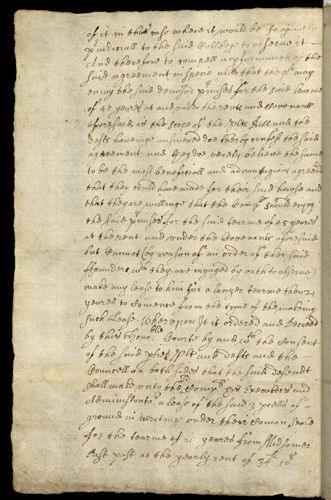 of it in this case where it would be so apparent
preiudiciall to the said Colledge to observe it
And therefore to compell a performance of the
said agreement in specie and that the plt may
enioy the said demised prmises for the said tearme
of 45 yeares at and under the rents and Covenants
aforesaid is the scope of the plts Bill and the
defts haveinge answered doe therby confesse the said
agreement and they doe verely beleeve the same
to be the most beneficiall and advantagious agreemt
that they could have made for their said howse and
that they are willinge that the Compt should enioy
the said prmises for the said tearme of 45 yeares
at the rent and under the Covenants aforesaid
but Cannot by reason of an order of their said
ffounders wch they are inioyned by oath to observe
make any lease to him for a longer tearme then
yeares to Comence from the tyme of the makeing
such Lease. Whereupon It is ordered and decreed
by this honoble Court by and wth the consent
of the said plt and defts and the
Councell on both sides that the said defendts
shall make unto the Compt his Executors and
Administrators a lease of the said 2 peells of
ground in writinge under their Comon Seale
for the tearme of 21 yeares from Midsomer
last past at the yearly rent of